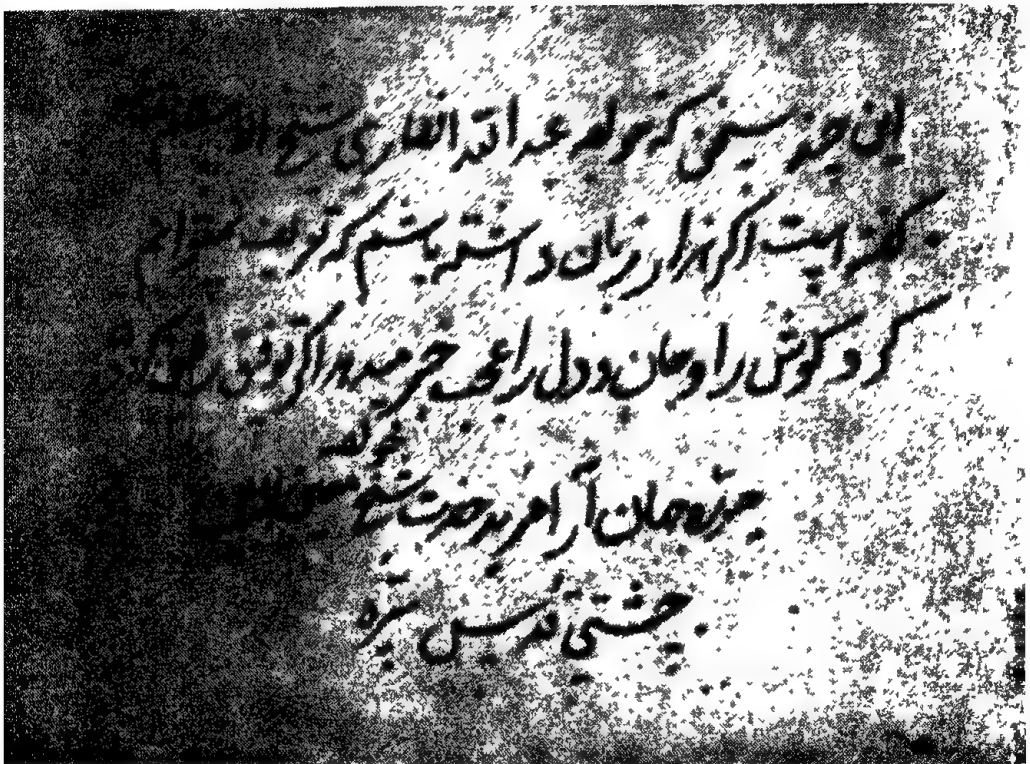 این چند سخن که مولفه عبد الله انصاری شیخ الاسلام
گفته است اگر هزار زبان داشته باشم که تعریف نتوانم
کرد و گوش را و جان و دل را عجب خبر میدهد اگر توفیق رفیق
حرره جان آرا مرید حضرت شیخ معین الدین
چشتی قدس سره